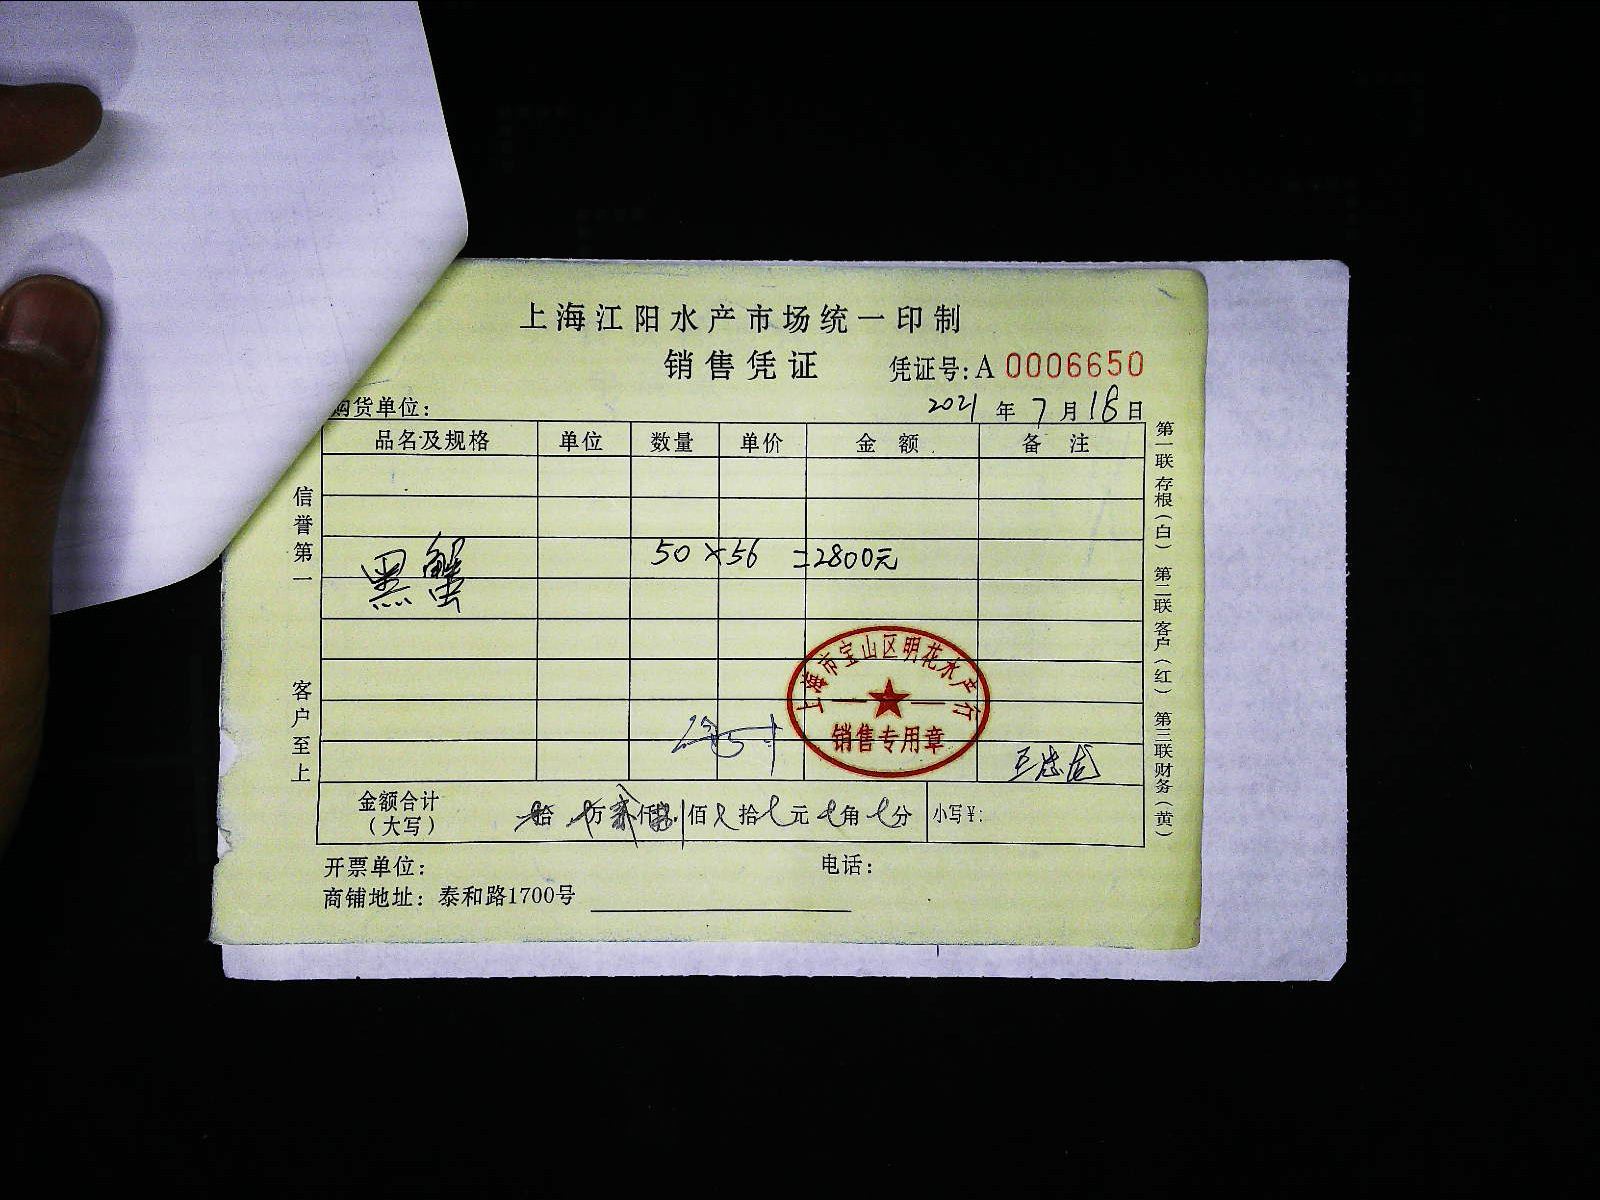 上海江阳水产市场统一印制
销售凭证 凭证号:A 0006650
购货单位: 2021 年 7 月 18 日
品名及规格 单位 数量 单价 金额 备注
黑蟹 50 ×56 =2800元
上海市宝山区明花水产行
销售专用章
金额合计
(大写)
拾 万 仟 佰 拾 元 角 分 小写¥:
开票单位: 电话:
商铺地址: 泰和路1700号
信誉第一 客户至上
第一联存根(白) 第二联客户(红) 第三联财务(黄)